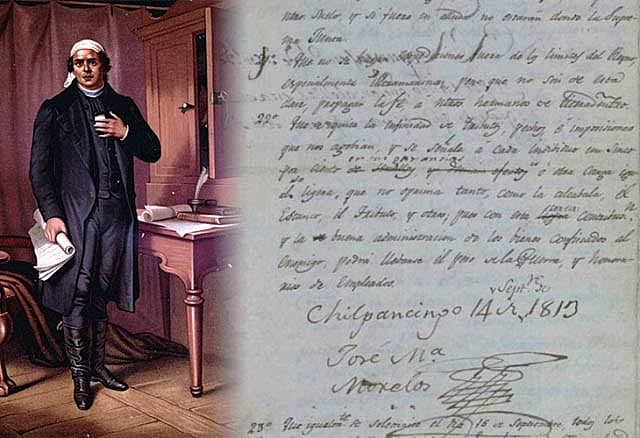 Suelo, y si fuere en no estarán donde la Supre
ma Junta.
Que no se expediciones fuera de los limites del Reyno,
especialmente Ultramarinas, pero que no son de esta
clase propagar la fé a hermanos de tierradentro.
22º Que se quite la infinidad de pechos é imposiciones
que nos agobian, y se señale a cada individuo un cinco
por ciento ganancias
ligera, que no oprima tanto, como la alcabala, el
Estanco, el Tributo, y otros, pues con esta
y la buena administracion de los bienes confiscados al
Enemigo, podrá llebarse el peso de la Guerra, y honora
rios de Empleados.
Chilpancingo 14 de Septe. de 1813
José Ma
Morelos
23º Que se solemnice el dia 16 de Septiembre, todos los